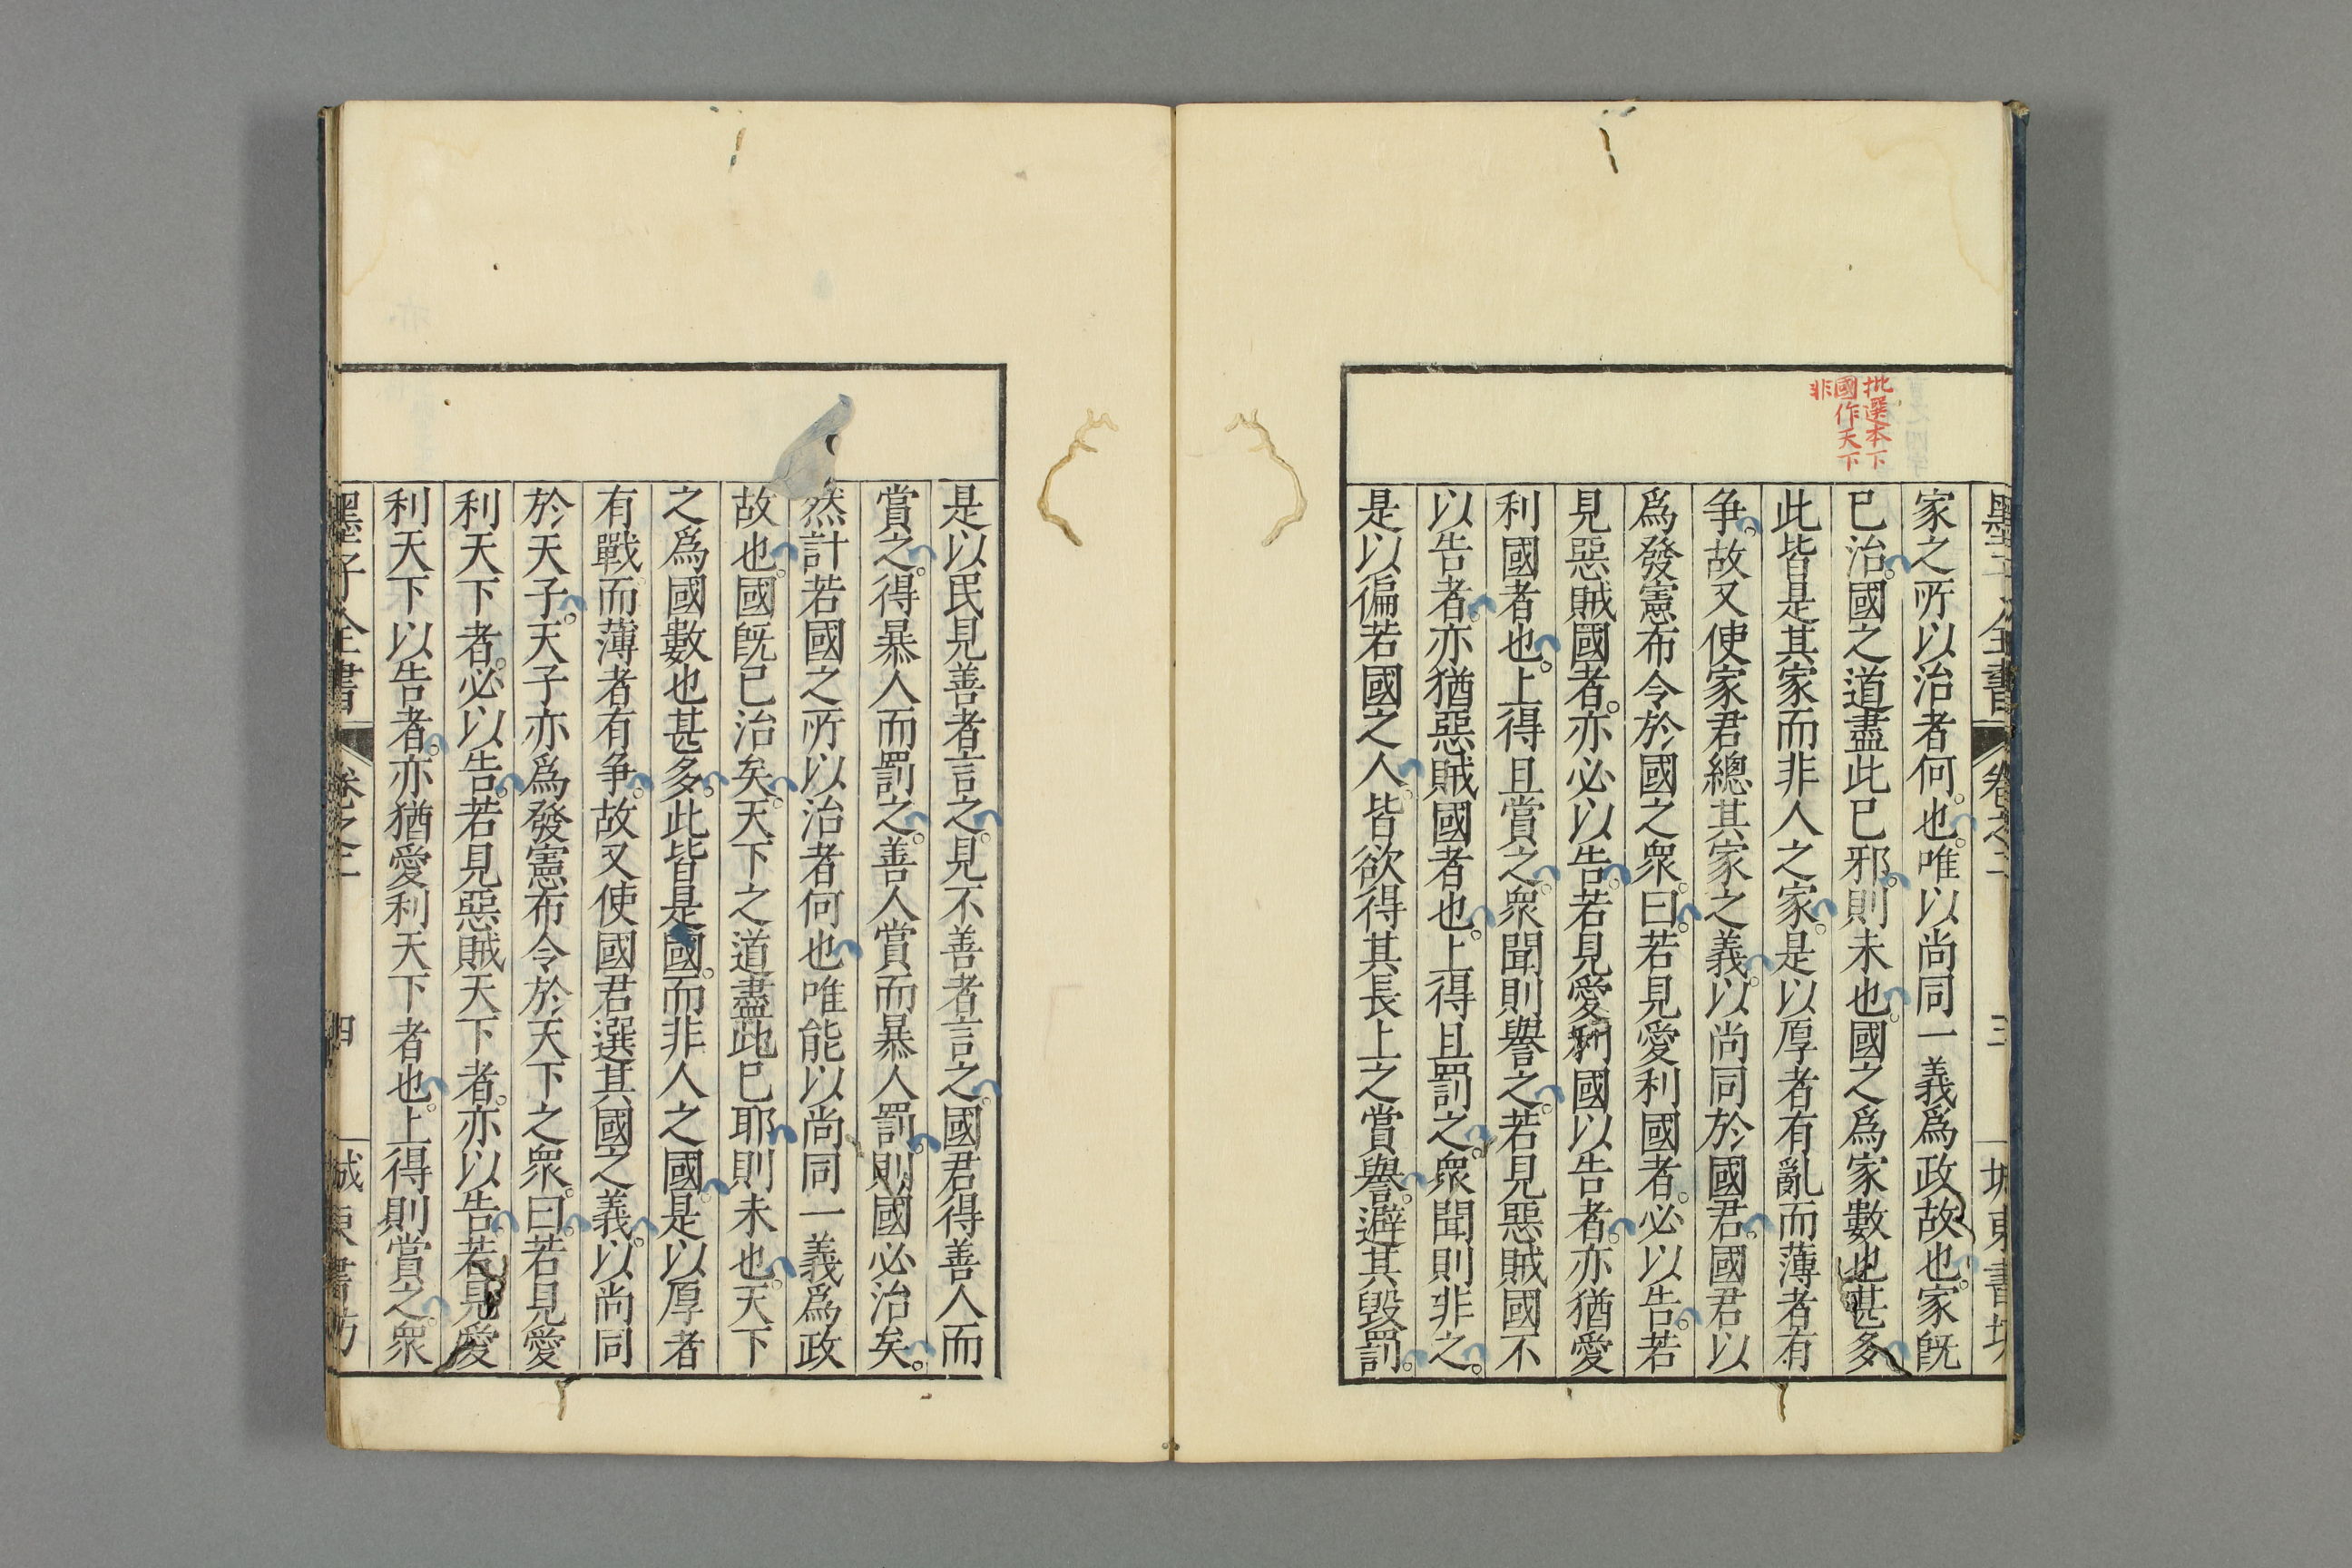 墨子全書 卷之二 三 城東書坊
批選本下
國作天下
非
家之所以治者何也。唯以尚同一義爲政故也。家旣
已治。國之道盡此已邪。則未也。國之爲家數也甚多
此皆是其家而非人之家。是以厚者有亂而薄者有
争。故又使家君總其家之義。以尚同於國君。國君以
爲發憲布令於國之衆。曰。若見愛利國者。必以告。若
見惡賊國者。亦必以告。若見愛利國以告者。亦猶愛
利國者也。上得且賞之。衆聞則譽之。若見惡賊國不
以告者。亦猶惡賊國者也。上得且罰之。衆聞則非之。
是以徧若國之人。皆欲得其長上之賞譽。避其毀罰。
是以民見善者言之。見不善者言之。國君得善人而
賞之。得暴人而罰之。善人賞而暴人罰。則國必治矣。
然計若國之所以治者何也唯能以尚同一義爲政
故也。國旣已治矣。天下之道盡此已耶。則未也。天下
之爲國數也甚多。此皆是國。而非人之國。是以厚者
有戰而薄者有争。故又使國君選其國之義。以尚同
於天子。天子亦爲發憲布令於天下之衆。曰。若見愛
利天下者。必以告。若見惡賊天下者。亦以告。若見愛
利天下以告者。亦猶愛利天下者也。上得則賞之。衆
墨子全書 卷之二 四 城東書坊